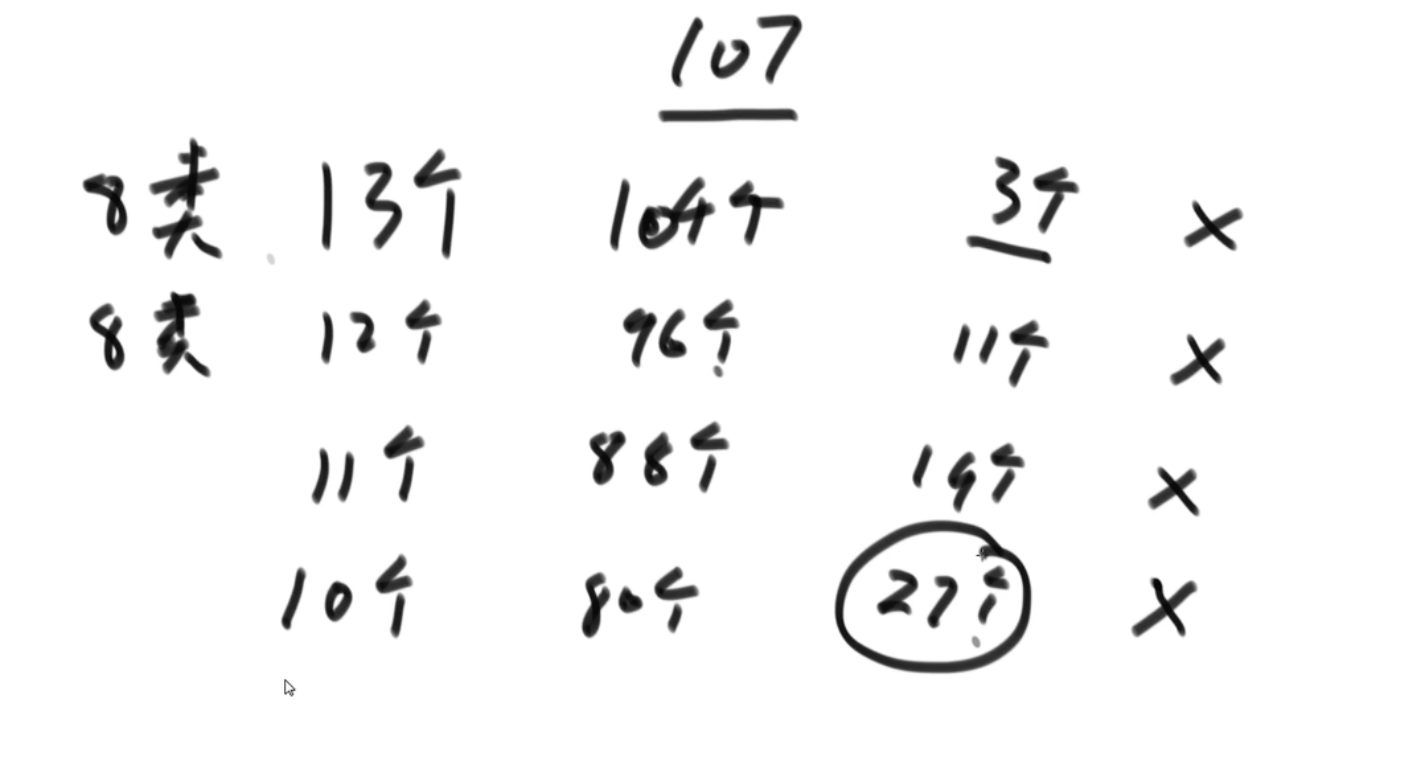 107
8类 13个 104个 3个 ×
8类 12个 96个 11个 ×
11个 88个 19个 ×
10个 80个 27个 ×